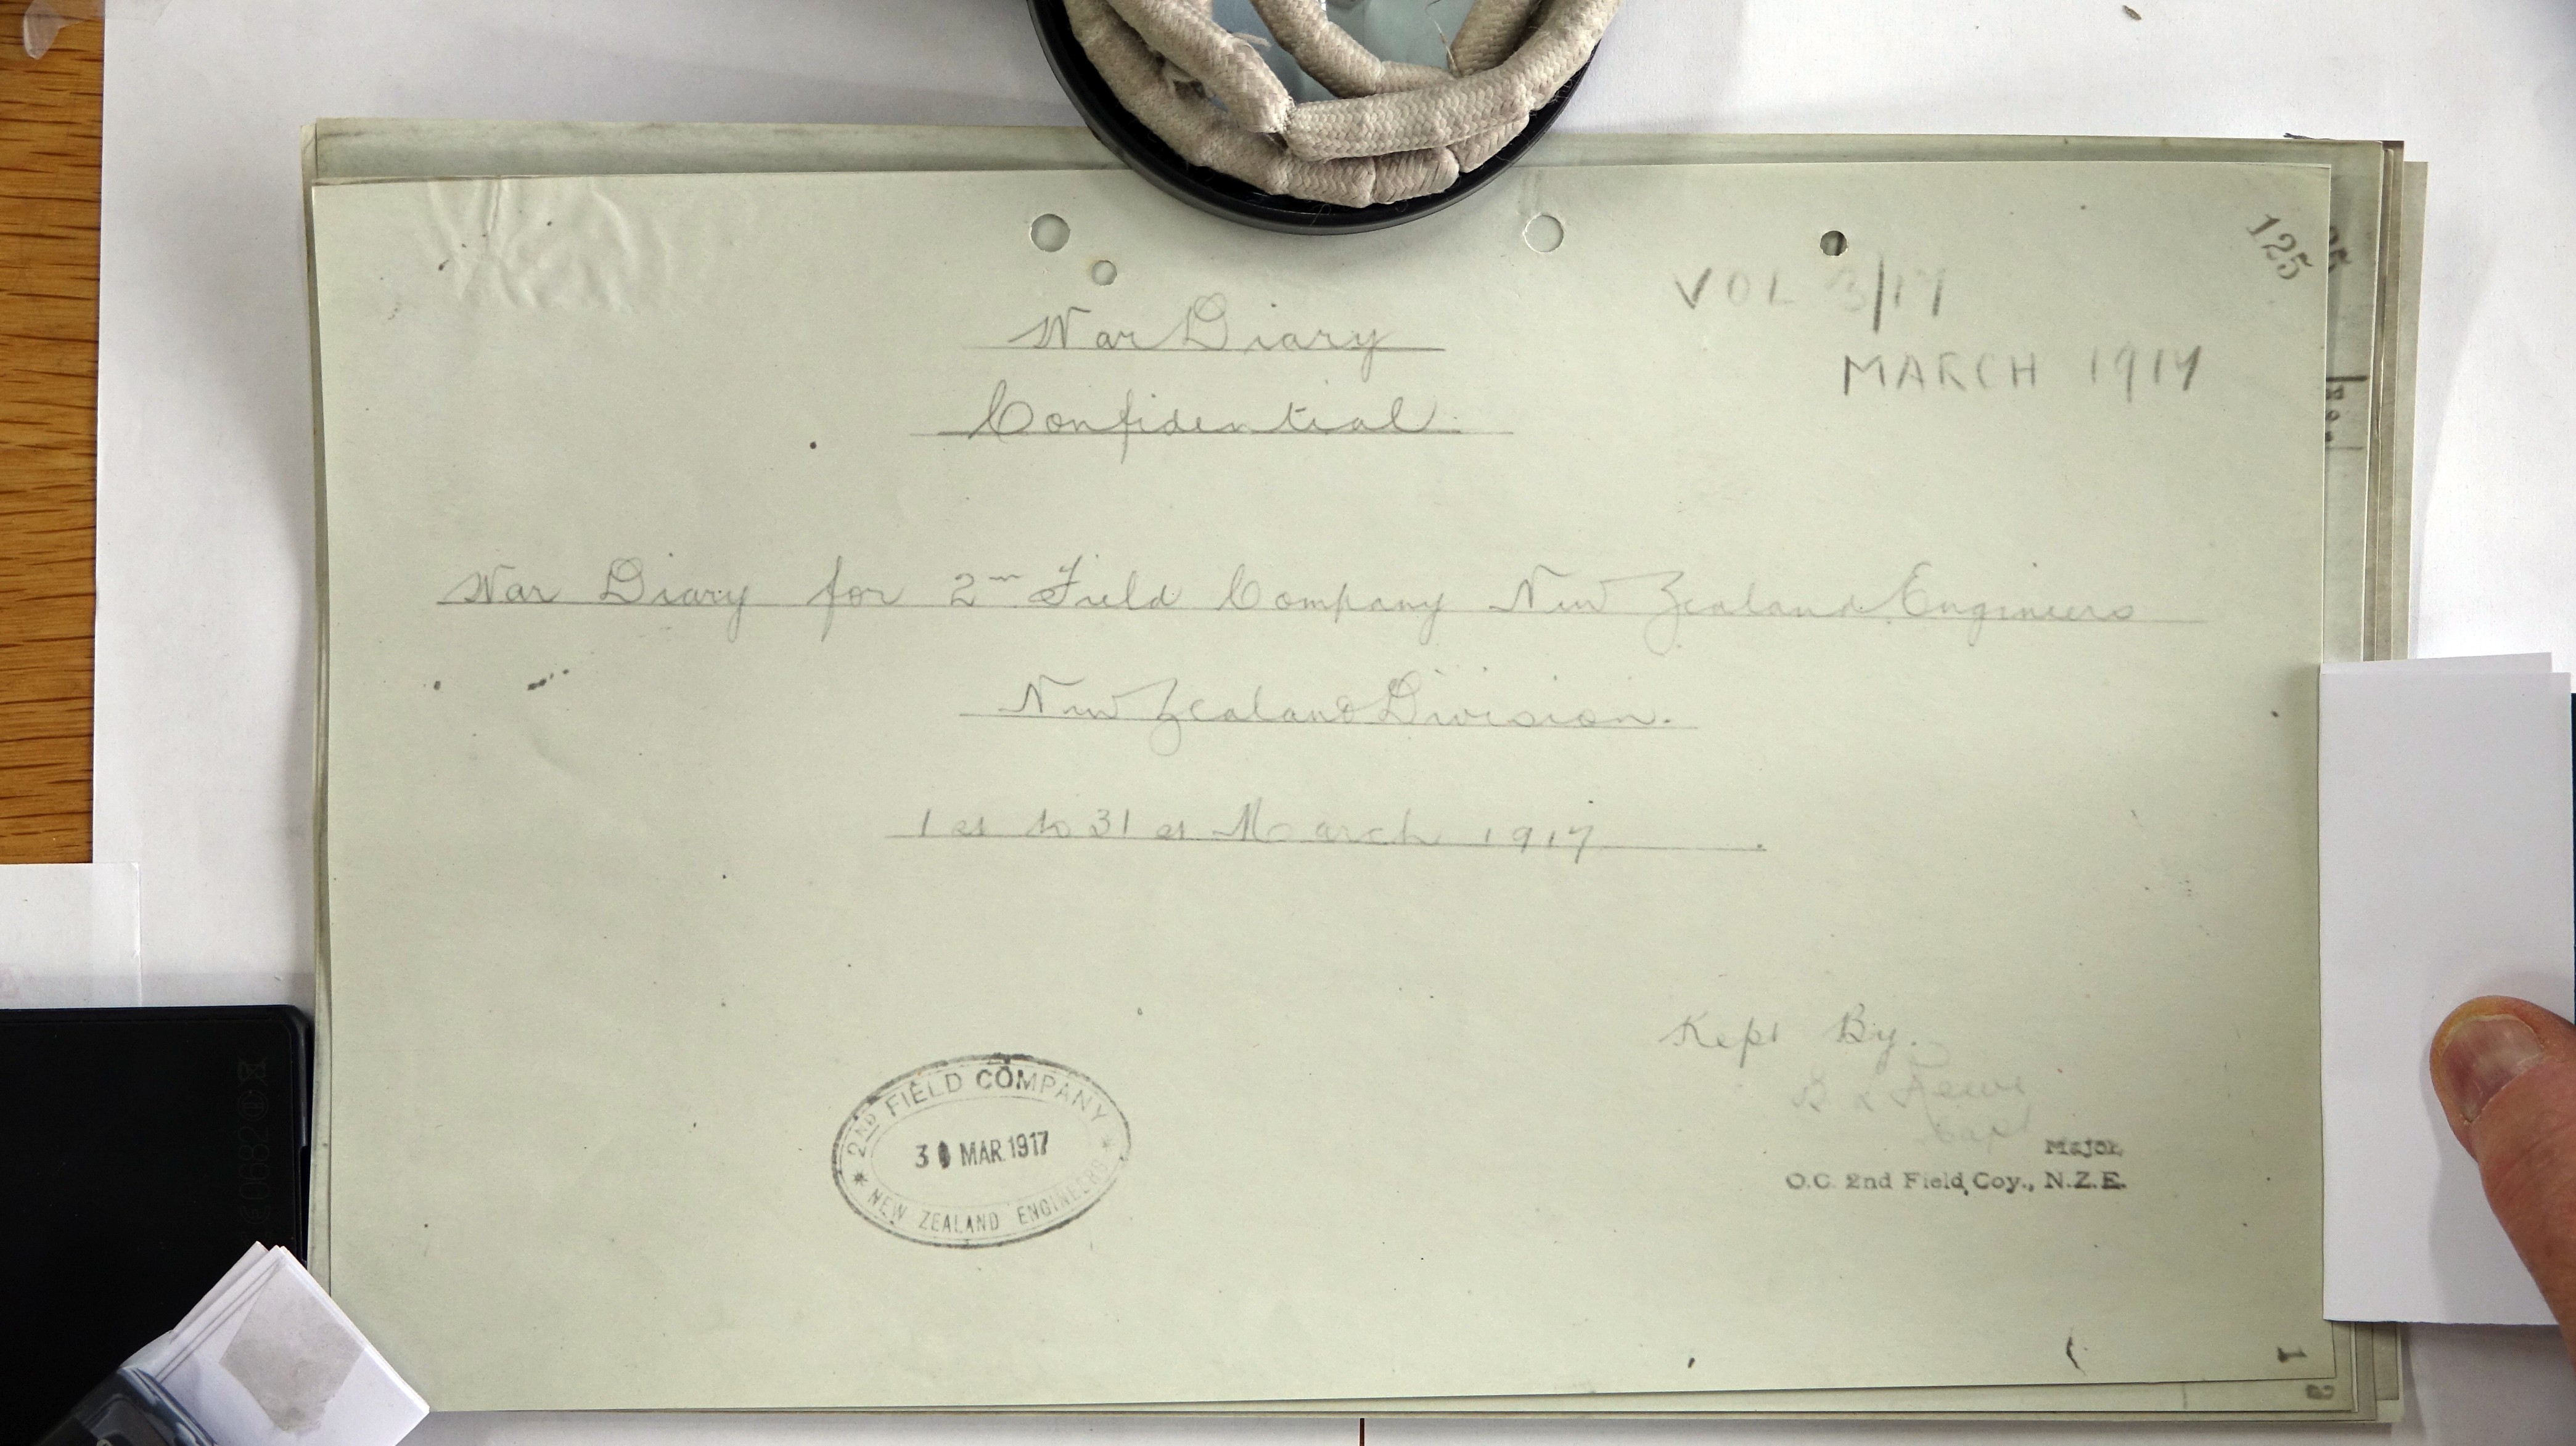 125
VOL 3/17
MARCH 1917
War Diary
Confidential.
War Diary for 2nd Field Company New Zealand Engineers
New Zealand Division.
1st to 31st March 1917.
Kept By.
Capt
Major,
O.C. 2nd Field Coy., N.Z.E.
2ND FIELD COMPANY
MAR. 1917
NEW ZEALAND ENGINEERS
1